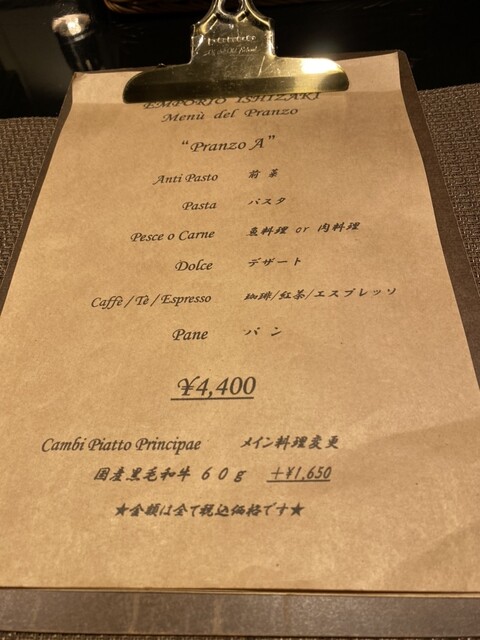 EMPORIO ISHIZAKI
Menù del Pranzo
“Pranzo A”
Anti Pasto 前菜
Pasta パスタ
Pesce o Carne 魚料理 or 肉料理
Dolce デザート
Caffè / Tè / Espresso 珈琲/紅茶/エスプレッソ
Pane パン
¥4,400
Cambi Piatto Principae メイン料理変更
国産黒毛和牛 60g +¥1,650
★金額は全て税込価格です★